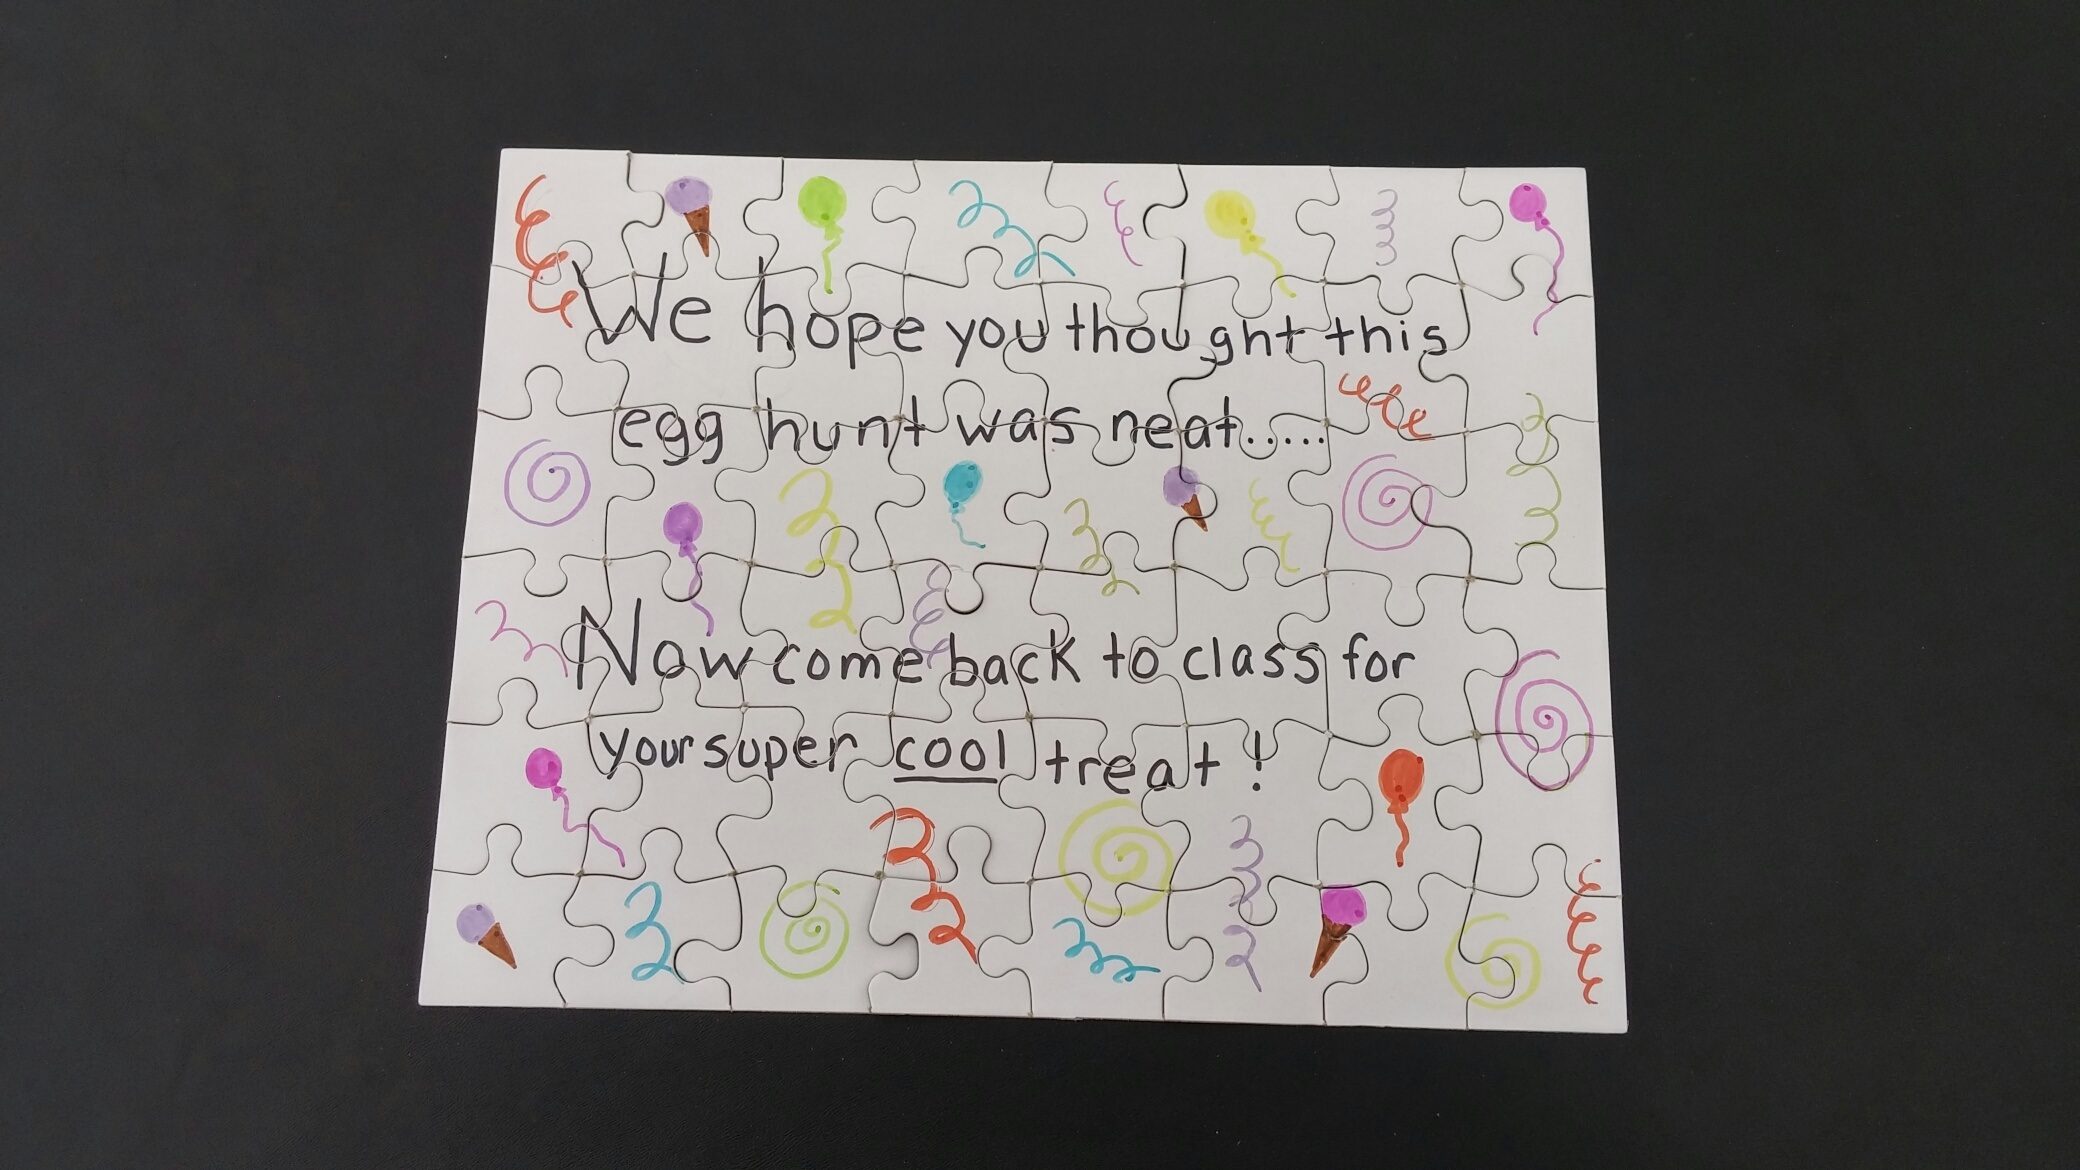 We hope you thought this
egg hunt was neat.....
Now come back to class for
your super cool treat!